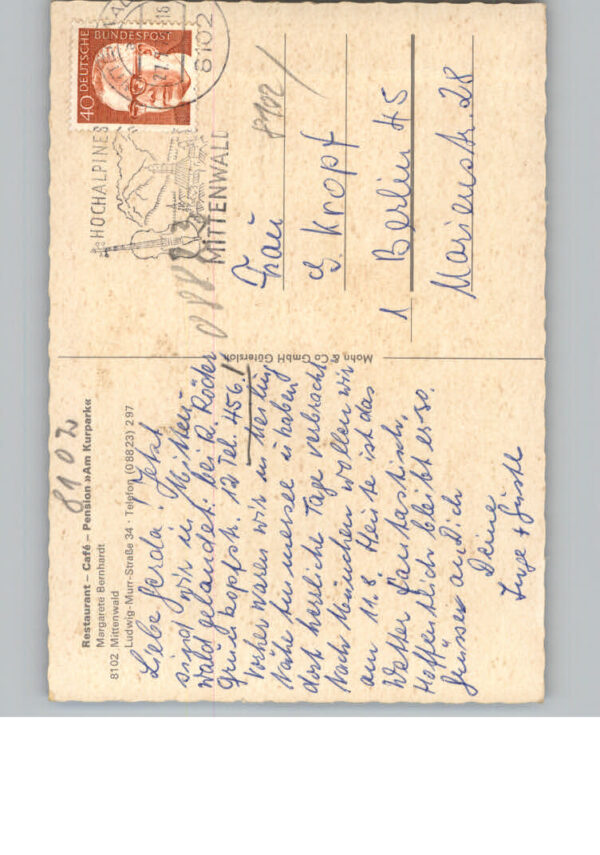 Restaurant – Café – Pension »Am Kurpark«
Margarete Bernhardt
8102 Mittenwald
Ludwig-Murr-Straße 34 · Telefon (0 88 23) 2 97
8102
Liebe Gerda! Jetzt
sind wir in Mitten-
wald gelandet. bei R. Röder
Gruberkopfstr. 12 Tel. 456.!
Vorher waren wir in
Nähe Simmersee u. haben
dort herrliche Tage verbracht
Nach München wollen wir
am 11.8. Heute ist das
Wetter fantastisch,
Hoffentlich bleibt es so.
Grüsse an Dich
Deine
Inge + Gustl
Mohn & Co GmbH Gütersloh
40 DEUTSCHE BUNDESPOST
8102
HOCHALPINES
MITTENWALD
08823
8102/
Frau
G. Kropf
1 Berlin 45
Marienstr. 28